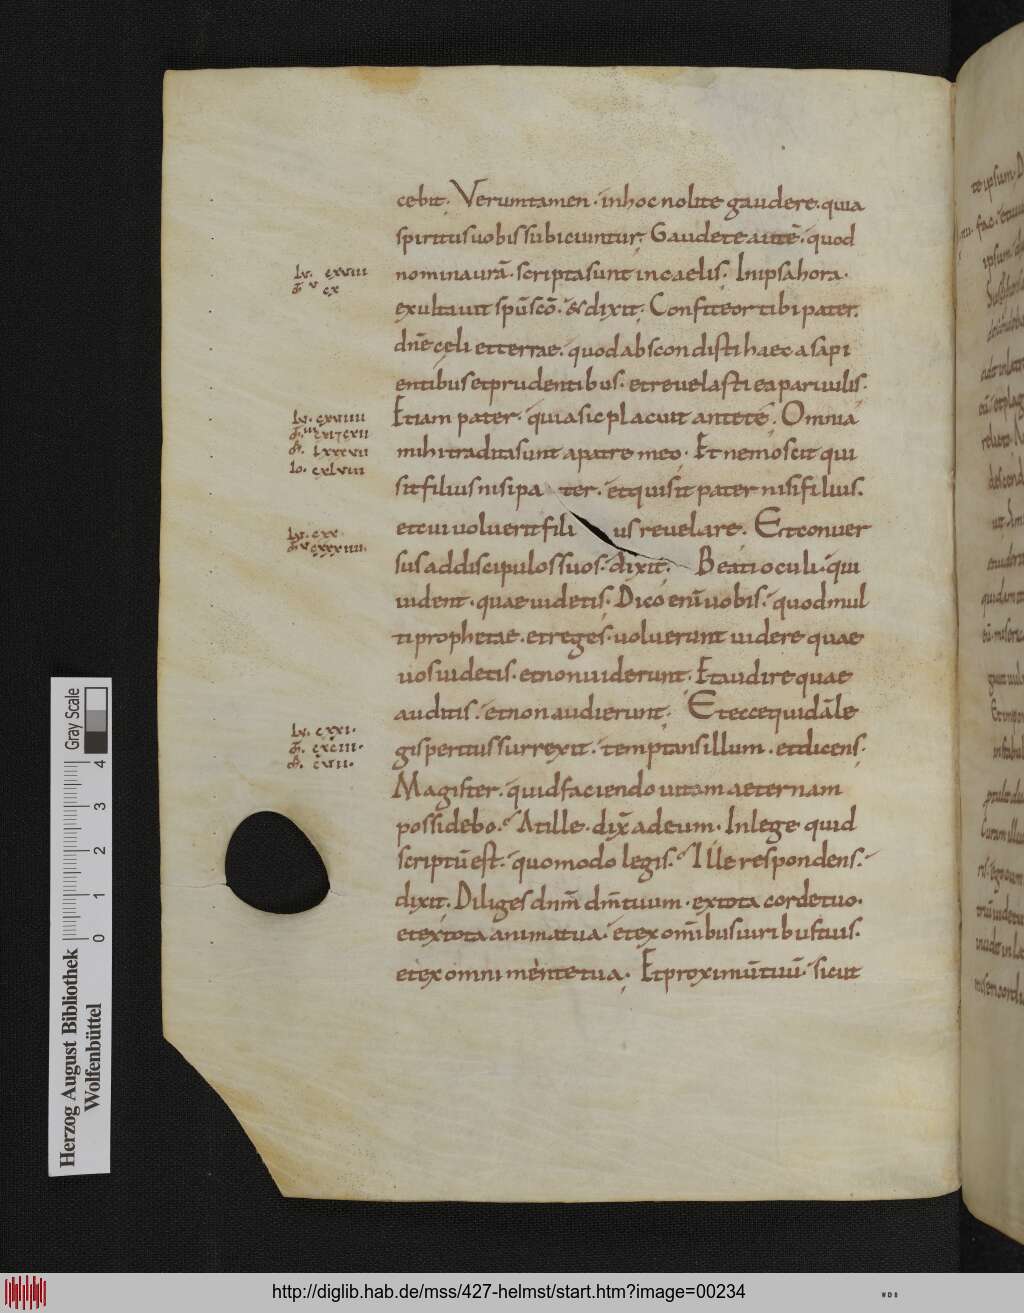 cebit. Verumtamen. in hoc nolite gaudere. quia
spiritus uobis subiciuntur. Gaudete autē. quod
nomina urā. scripta sunt in caelis. In ipsa hora.
exultauit spū scō. & dixit. Confiteor tibi pater.
dnē cęli et terrae. quod abscondisti haec a sapi
entibus et prudentibus. et reuelasti ea paruulis.
Etiam pater. quia sic placuit ante te. Omnia
mihi tradita sunt a patre meo. Et nemo scit qui
sit filius nisi pa ter. et qui sit pater nisi filius.
et cui uoluerit fili us reuelare. Et conuer
sus ad discipulos suos. dixit. Beati oculi. qui
uident. quae uidetis. Dico enī uobis. quod mul
ti prophetae. et reges. uoluerunt uidere quae
uos uidetis. et non uiderunt. Et audire quae
auditis. et non audierunt. Et ecce quidā le
gis peritus surrexit. temptans illum. et dicens.
Magister. quid faciendo uitam aeternam
possidebo. At ille. dix̄ ad eum. In lege quid
scriptū est. quomodo legis. Ille respondens.
dixit. Diliges dnm̄ dm̄ tuum. ex tota corde tuo.
et ex tota anima tua. et ex omībus uiribus tuis.
et ex omni mente tua. Et proximū tuū. sicut
Lv. cxviii
cx
Lv. cxviiii
lxxxvii
Io. cxlviii
Lv. cxx
cxxxiiii.
Lv. cxxi.
cxciii.
cvii.
Gray Scale
0 1 2 3 4
Herzog August Bibliothek
Wolfenbüttel
http://diglib.hab.de/mss/427-helmst/start.htm?image=00234